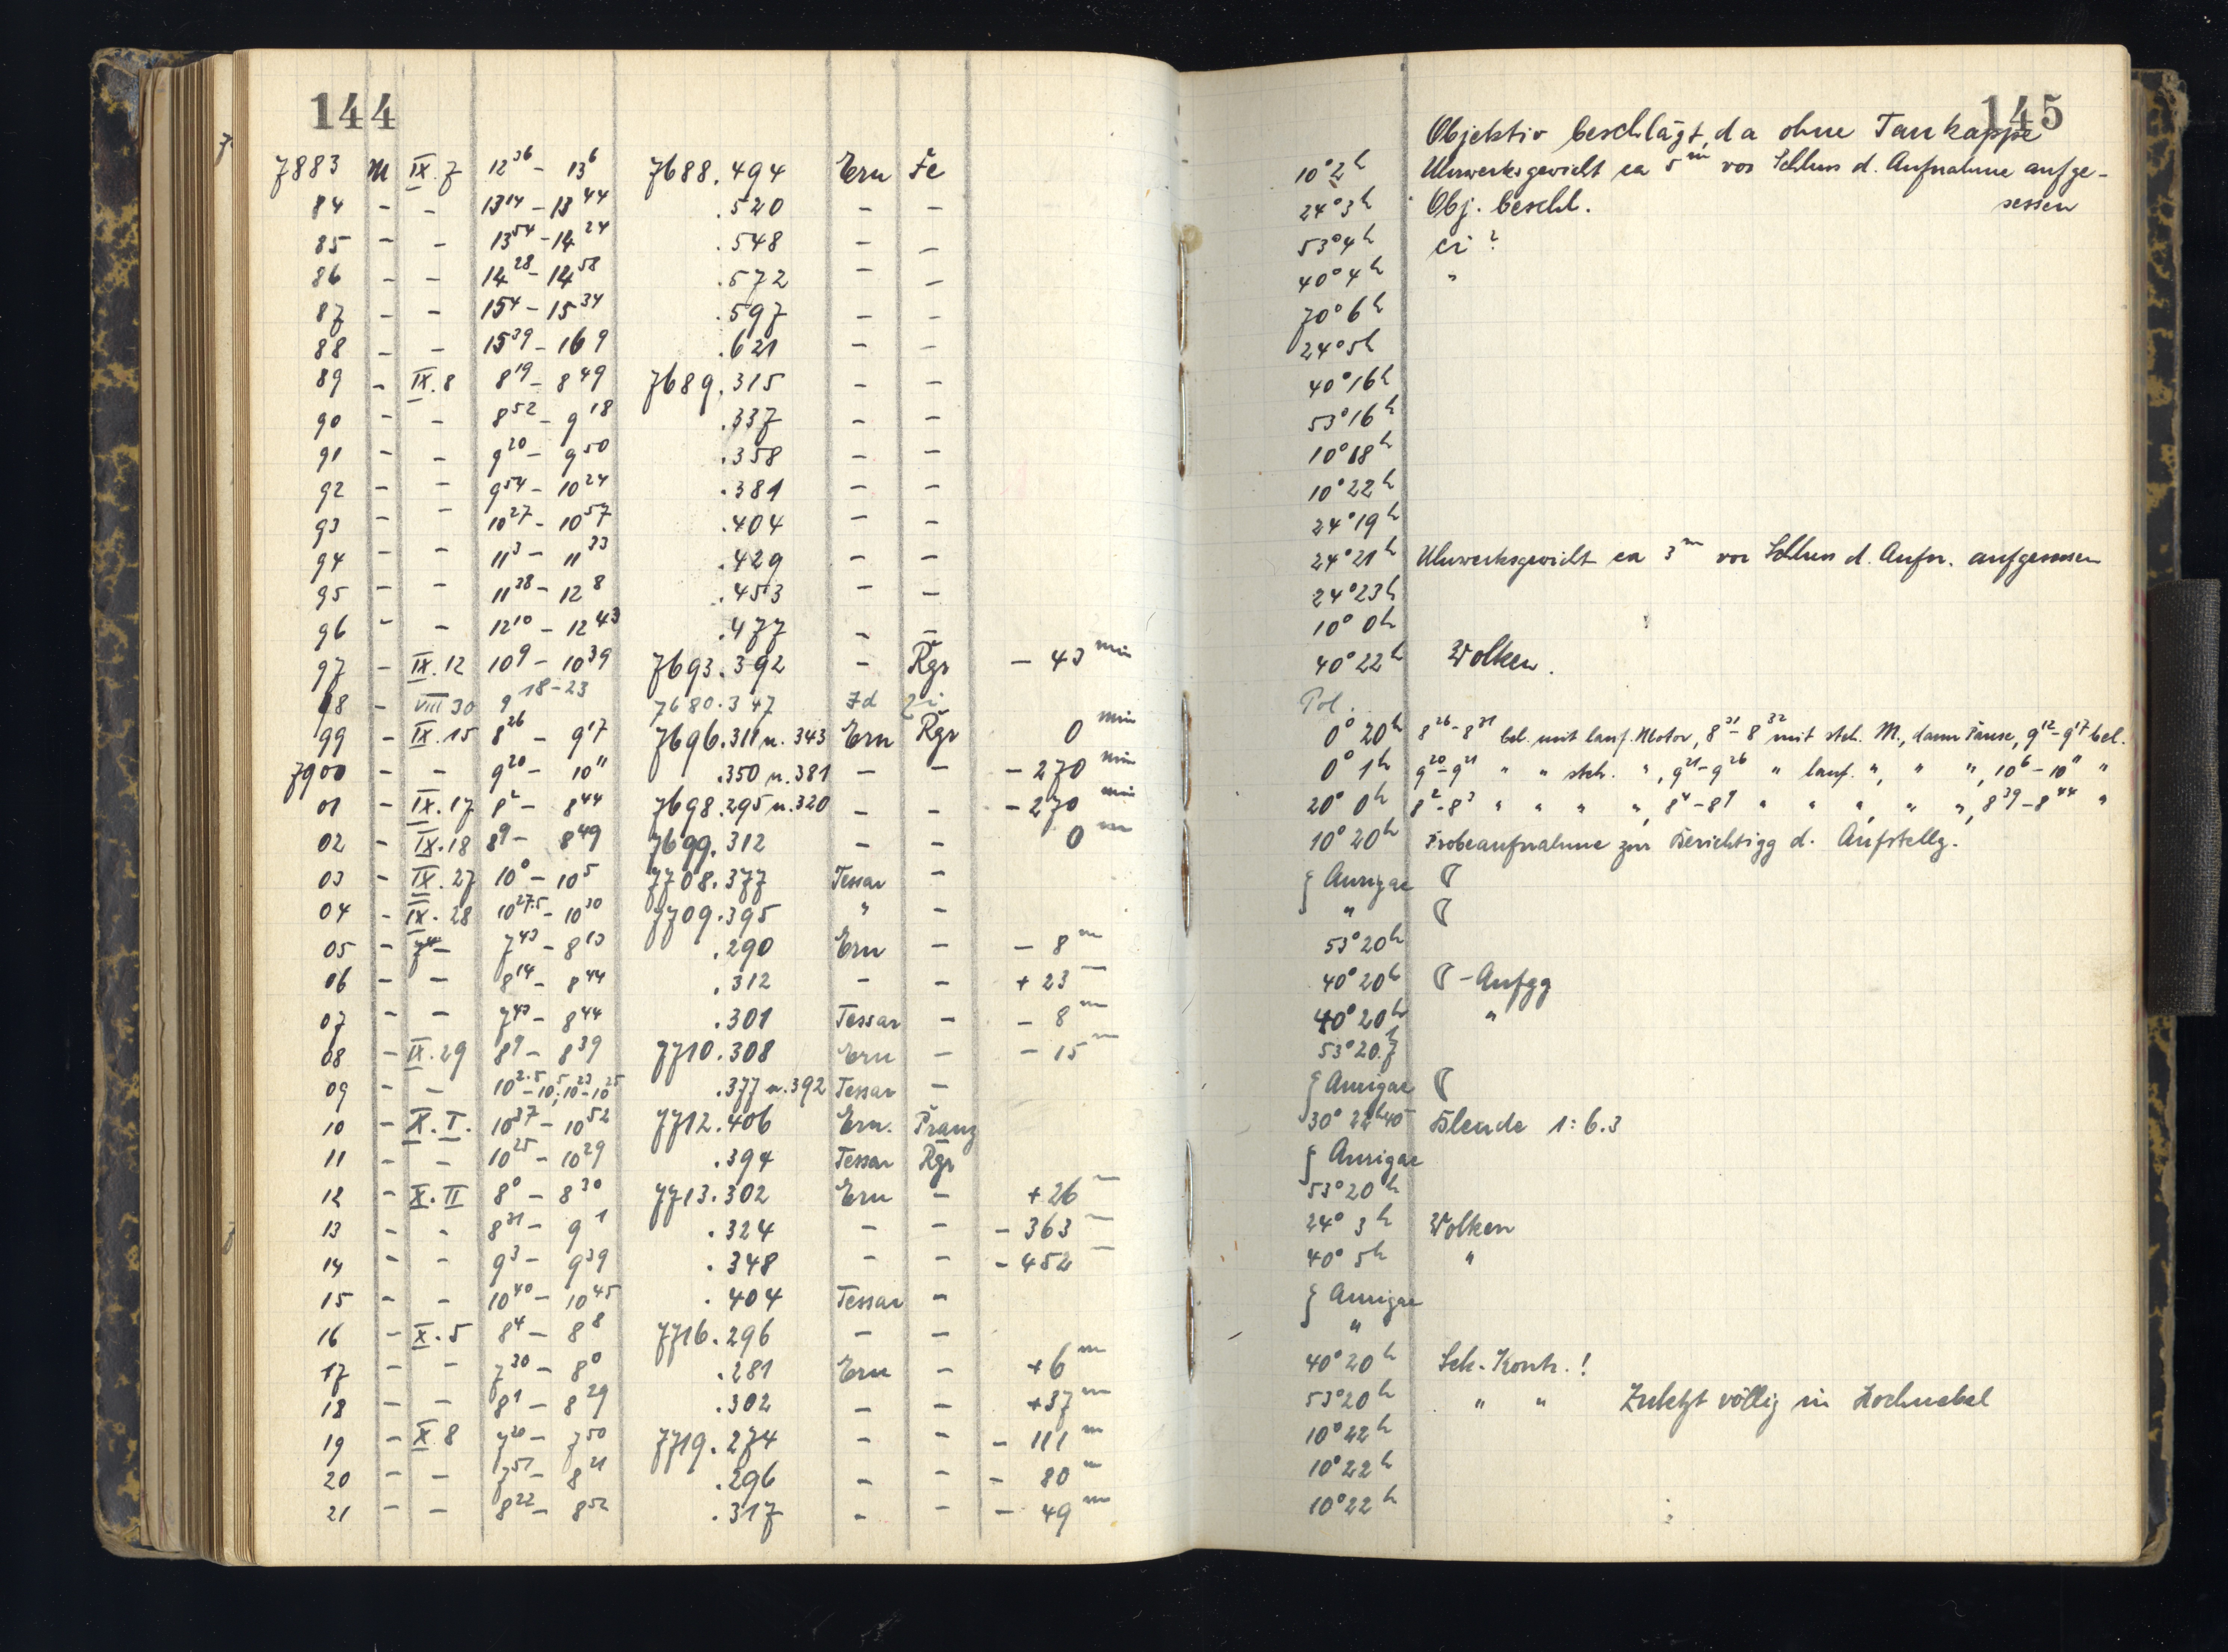 144
7883 M IX.7 12³⁶ – 13⁶ 7688.494 Ern Fe
84 – – 13¹⁴ – 13⁴⁴ .520 – –
85 – – 13⁵⁴ – 14²⁴ .548 – –
86 – – 14²⁸ – 14⁵⁸ .572 – –
87 – – 15⁴ – 15³⁴ .597 – –
88 – – 15³⁹ – 16⁹ .621 – –
89 – IX.8 8¹⁹ – 8⁴⁹ 7689.315 – –
90 – – 8⁵² – 9¹⁸ .337 – –
91 – – 9²⁰ – 9⁵⁰ .358 – –
92 – – 9⁵⁴ – 10²⁴ .381 – –
93 – – 10²⁷ – 10⁵⁷ .404 – –
94 – – 11³ – 11³³ .429 – –
95 – – 11³⁸ – 12⁸ .453 – –
96 – – 12¹⁰ – 12⁴³ .477 – –
97 – IX.12 10⁹ – 10³⁹ 7693.392 – Rgr – 43 min
98 – VIII 30 9¹⁸⁻²³ 7680.347 Zd
99 – IX.15 8²⁶ – 9¹⁷ 7696.311 u. 343 Ern Rgr 0 min
7900 – – 9²⁰ – 10¹¹ .350 u. 381 – – – 270 min
01 – IX.17 8² – 8⁴⁴ 7698.295 u. 320 – – – 270 min
02 – IX.18 8⁹ – 8⁴⁹ 7699.312 – – 0 m
03 – IX.27 10⁰ – 10⁵ 7708.377 Tessar –
04 – IX.28 10²⁷·⁵ – 10³⁰ 7709.395 " –
05 – – 7⁴³ – 8¹³ .290 Ern – – 8 m
06 – – 8¹⁴ – 8⁴⁴ .312 – – + 23 –
07 – – 7⁴³ – 8⁴⁴ .301 Tessar – – 8 m
08 – IX.29 8⁹ – 8³⁹ 7710.308 Ern – – 15 m
09 – – 10²·⁵ – 10⁵; 10²³ – 10²⁵ .377 u. 392 Tessar –
10 – X.I. 10³⁷ – 10⁵² 7712.406 Ern. Franz
11 – – 10²⁵ – 10²⁹ .394 Tessar Rgr
12 – X.II 8⁰ – 8³⁰ 7713.302 Ern – + 26 –
13 – – 8³¹ – 9¹ .324 – – – 363 –
14 – – 9³ – 9³⁹ .348 – – – 452 –
15 – – 10⁴⁰ – 10⁴⁵ .404 Tessar –
16 – X.5 8⁴ – 8⁸ 7716.296 – –
17 – – 7³⁰ – 8⁰ .281 Ern – + 6 m
18 – – 8¹ – 8²⁹ .302 – – + 37 m
19 – X.8 7²⁰ – 7⁵⁰ 7719.274 – – – 111 m
20 – – 7⁵¹ – 8²¹ .296 – – – 80 m
21 – – 8²² – 8⁵² .317 – – – 49 m
145
Objektiv beschlägt, da ohne Taukappe
10° 2ʰ Uhrwerksgewicht ca 5ᵐ vor Schluss d. Aufnahme aufge-
sessen
24° 3ʰ Obj. beschl.
53° 4ʰ ei ?
40° 4ʰ "
70° 6ʰ
24° 5ʰ
40° 16ʰ
53° 16ʰ
10° 18ʰ
10° 22ʰ
24° 19ʰ
24° 21ʰ Uhrwerksgewicht ca 3ᵐ vor Schluss d. Aufn. aufgesessen
24° 23ʰ
10° 0ʰ
40° 22ʰ Wolken.
Pol.
0° 20ʰ 8²⁶ – 8³¹ bel. mit lauf. Motor, 8³¹ – 8³² mit steh. M., dann Pause, 9¹² – 9¹⁷ bel.
0° 1ʰ 9²⁰ – 9²¹ " " steh. ", 9²¹ – 9²⁶ " lauf. ", " ", 10⁶ – 10¹¹ "
20° 0ʰ 8² – 8³ " " " ", 8⁴ – 8⁹ " " ", " ", 8³⁹ – 8⁴⁴ "
10° 20ʰ Probeaufnahme zur Berichtigg d. Aufstellg.
ζ Aurigae ☾
" ☾
53° 20ʰ
40° 20ʰ ☾ – Aufgg
40° 20ʰ "
53° 20.7ʰ
ζ Aurigae ☾
30° 22ʰ40 Blende 1:6.3
ζ Aurigae
53° 20ʰ
24° 3ʰ Wolken
40° 5ʰ "
ζ Aurigae
"
40° 20ʰ Sek. Kontr. !
53° 20ʰ " " Zuletzt völlig in Hochnebel
10° 22ʰ
10° 22ʰ
10° 22ʰ